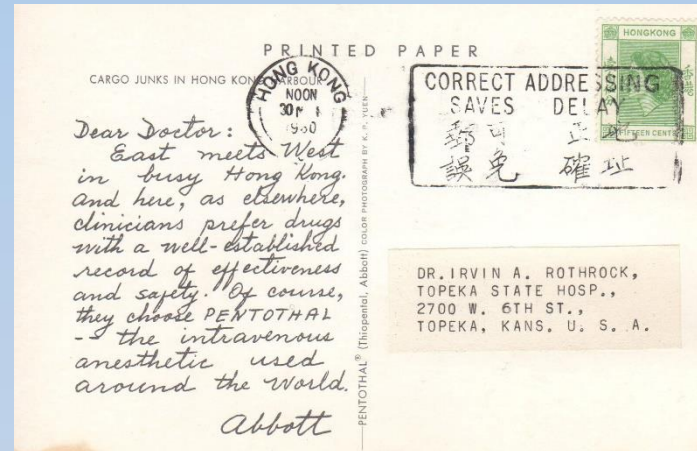 PRINTED PAPER
CARGO JUNKS IN HONG KONG HARBOUR
HONG KONG
NOON
1960
CORRECT ADDRESSING
SAVES DELAY
郵可 正地
誤免 確址
HONGKONG
FIFTEEN CENTS
Dear Doctor:
East meets West
in busy Hong Kong.
and here, as elsewhere,
clinicians prefer drugs
with a well-established
record of effectiveness
and safety. Of course,
they choose PENTOTHAL
-- the intravenous
anesthetic used
around the world.
Abbott
PENTOTHAL® (Thiopental, Abbott) COLOR PHOTOGRAPH BY K. P. YUEN
DR.IRVIN A. ROTHROCK,
TOPEKA STATE HOSP.,
2700 W. 6TH ST.,
TOPEKA, KANS. U. S. A.